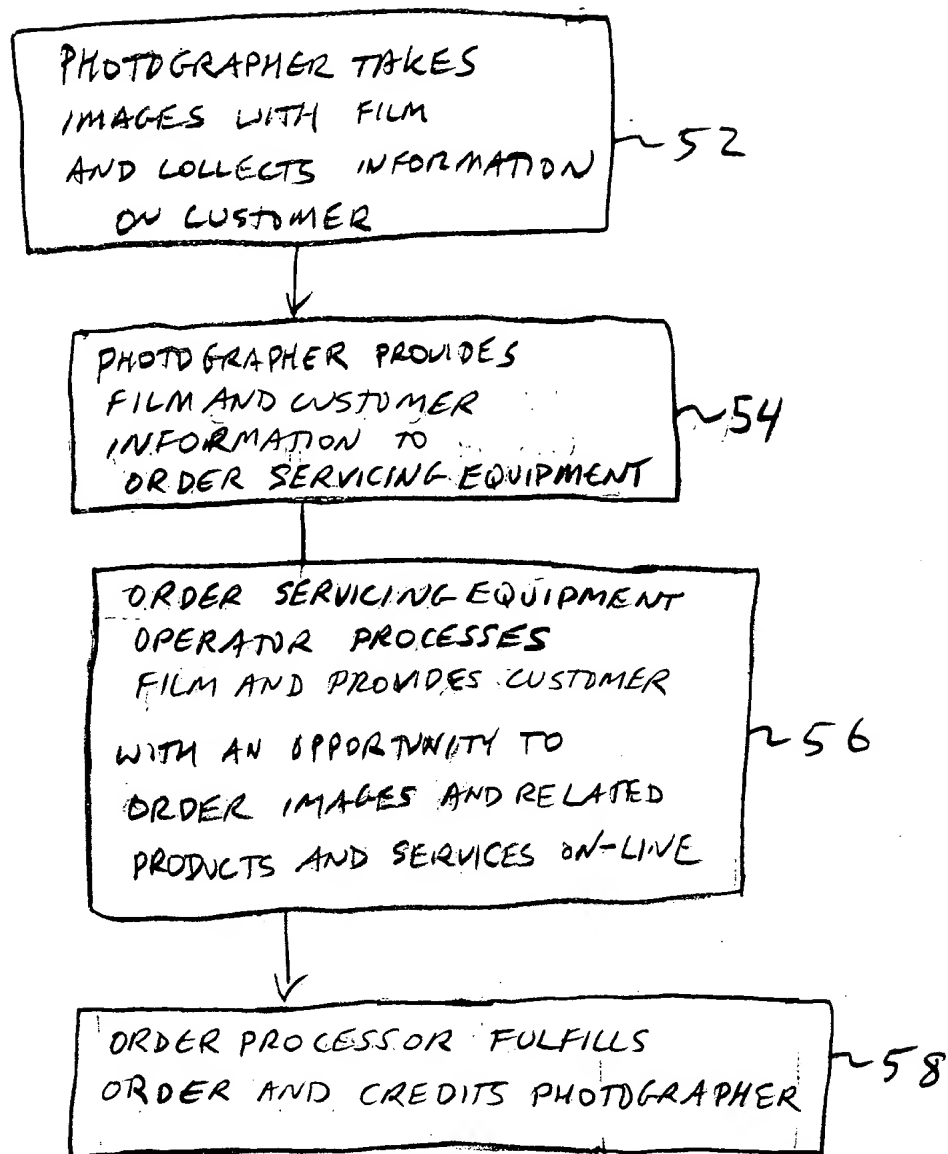 PHOTOGRAPHER TAKES
IMAGES WITH FILM
AND COLLECTS INFORMATION
ON CUSTOMER
~52
PHOTOGRAPHER PROVIDES
FILM AND CUSTOMER
INFORMATION TO
ORDER SERVICING EQUIPMENT
~54
ORDER SERVICING EQUIPMENT
OPERATOR PROCESSES
FILM AND PROVIDES CUSTOMER
WITH AN OPPORTUNITY TO
ORDER IMAGES AND RELATED
PRODUCTS AND SERVICES ON-LINE
~56
ORDER PROCESSOR FULFILLS
ORDER AND CREDITS PHOTOGRAPHER
~58